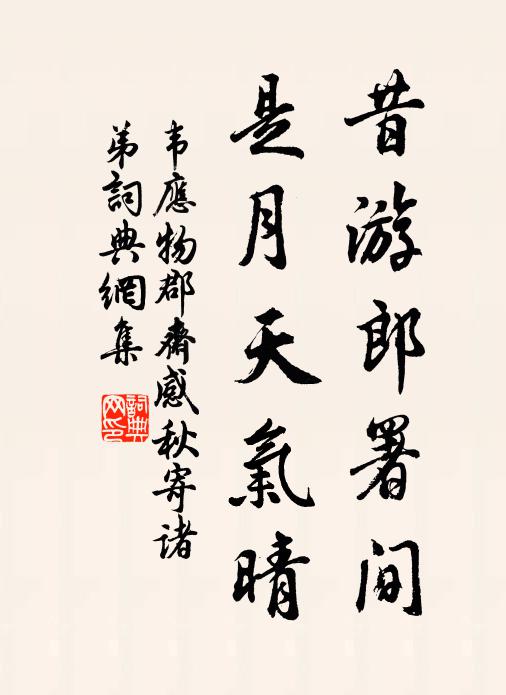 昔游郎署间
是月天氣晴
韦應物郡齋感秋寄諸
弟詞典網集
詞典
网印